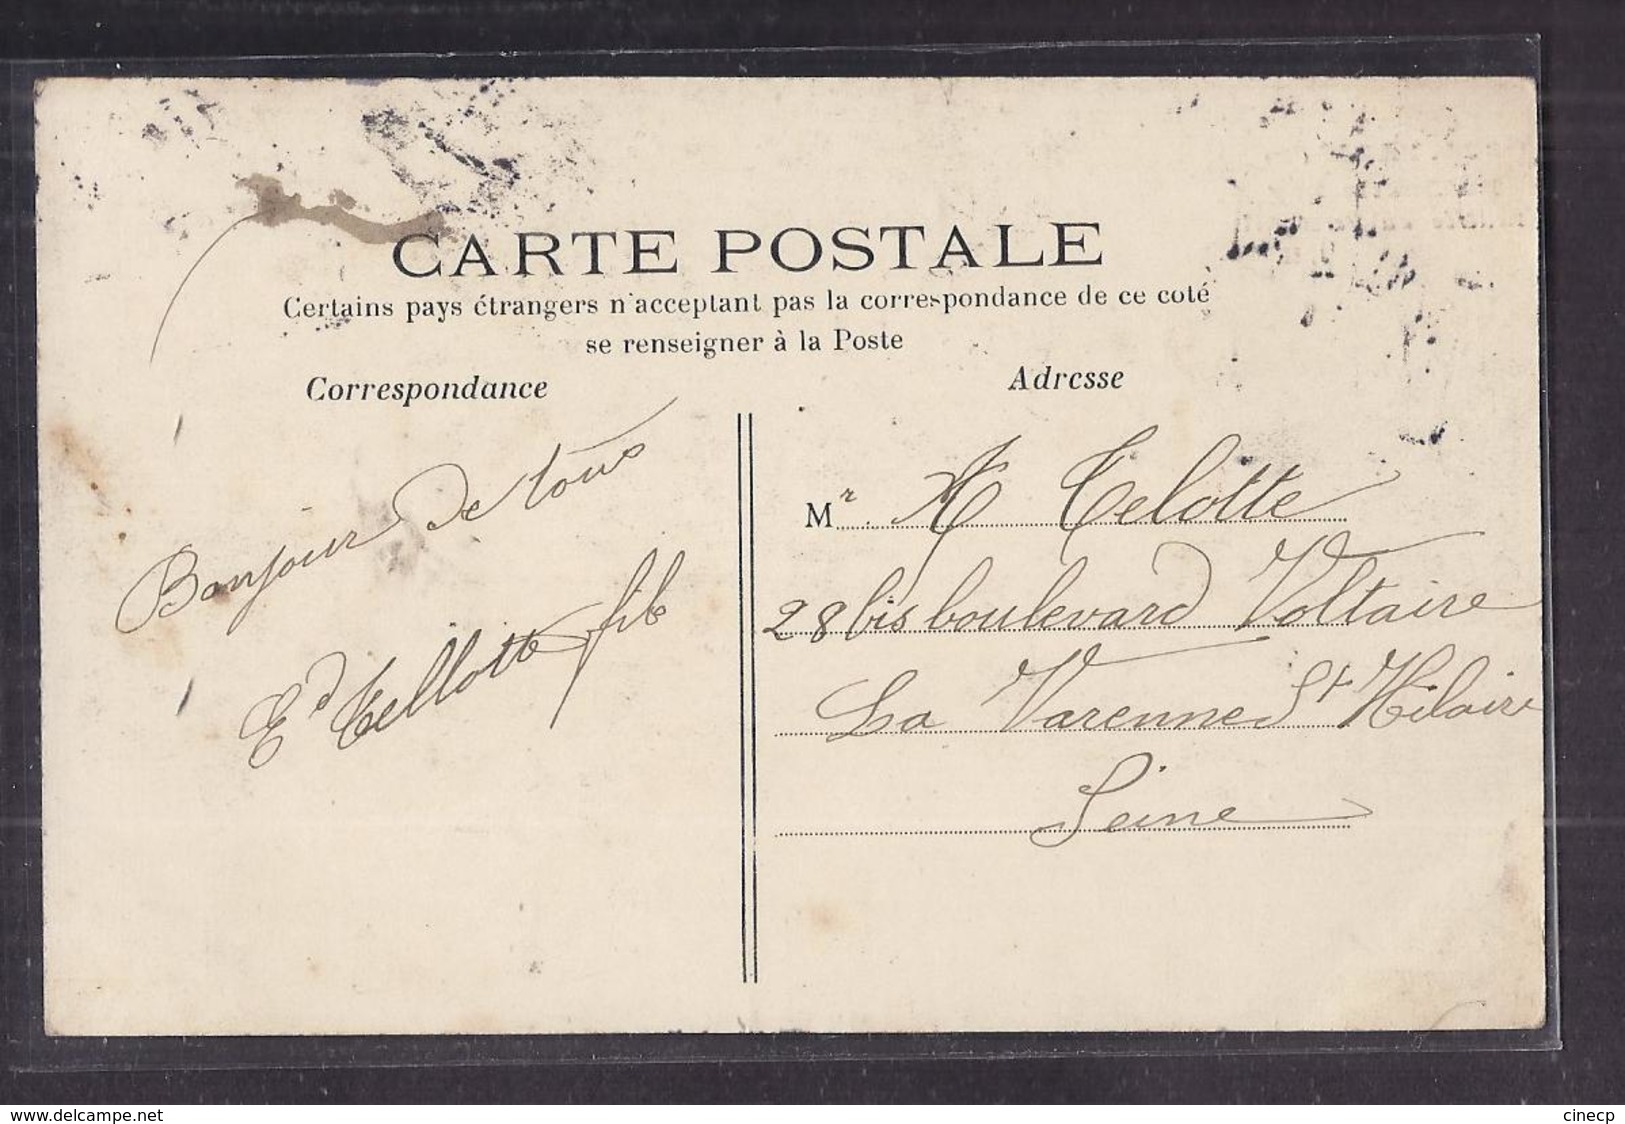 CARTE POSTALE
Certains pays étrangers n'acceptant pas la correspondance de ce coté
se renseigner à la Poste
Correspondance
Bonjour de tous
Ed Tellotte fils
Adresse
Mr. Telotte
28 bis boulevard Voltaire
La Varenne St Hilaire
Seine
www.delcampe.net
cinecp